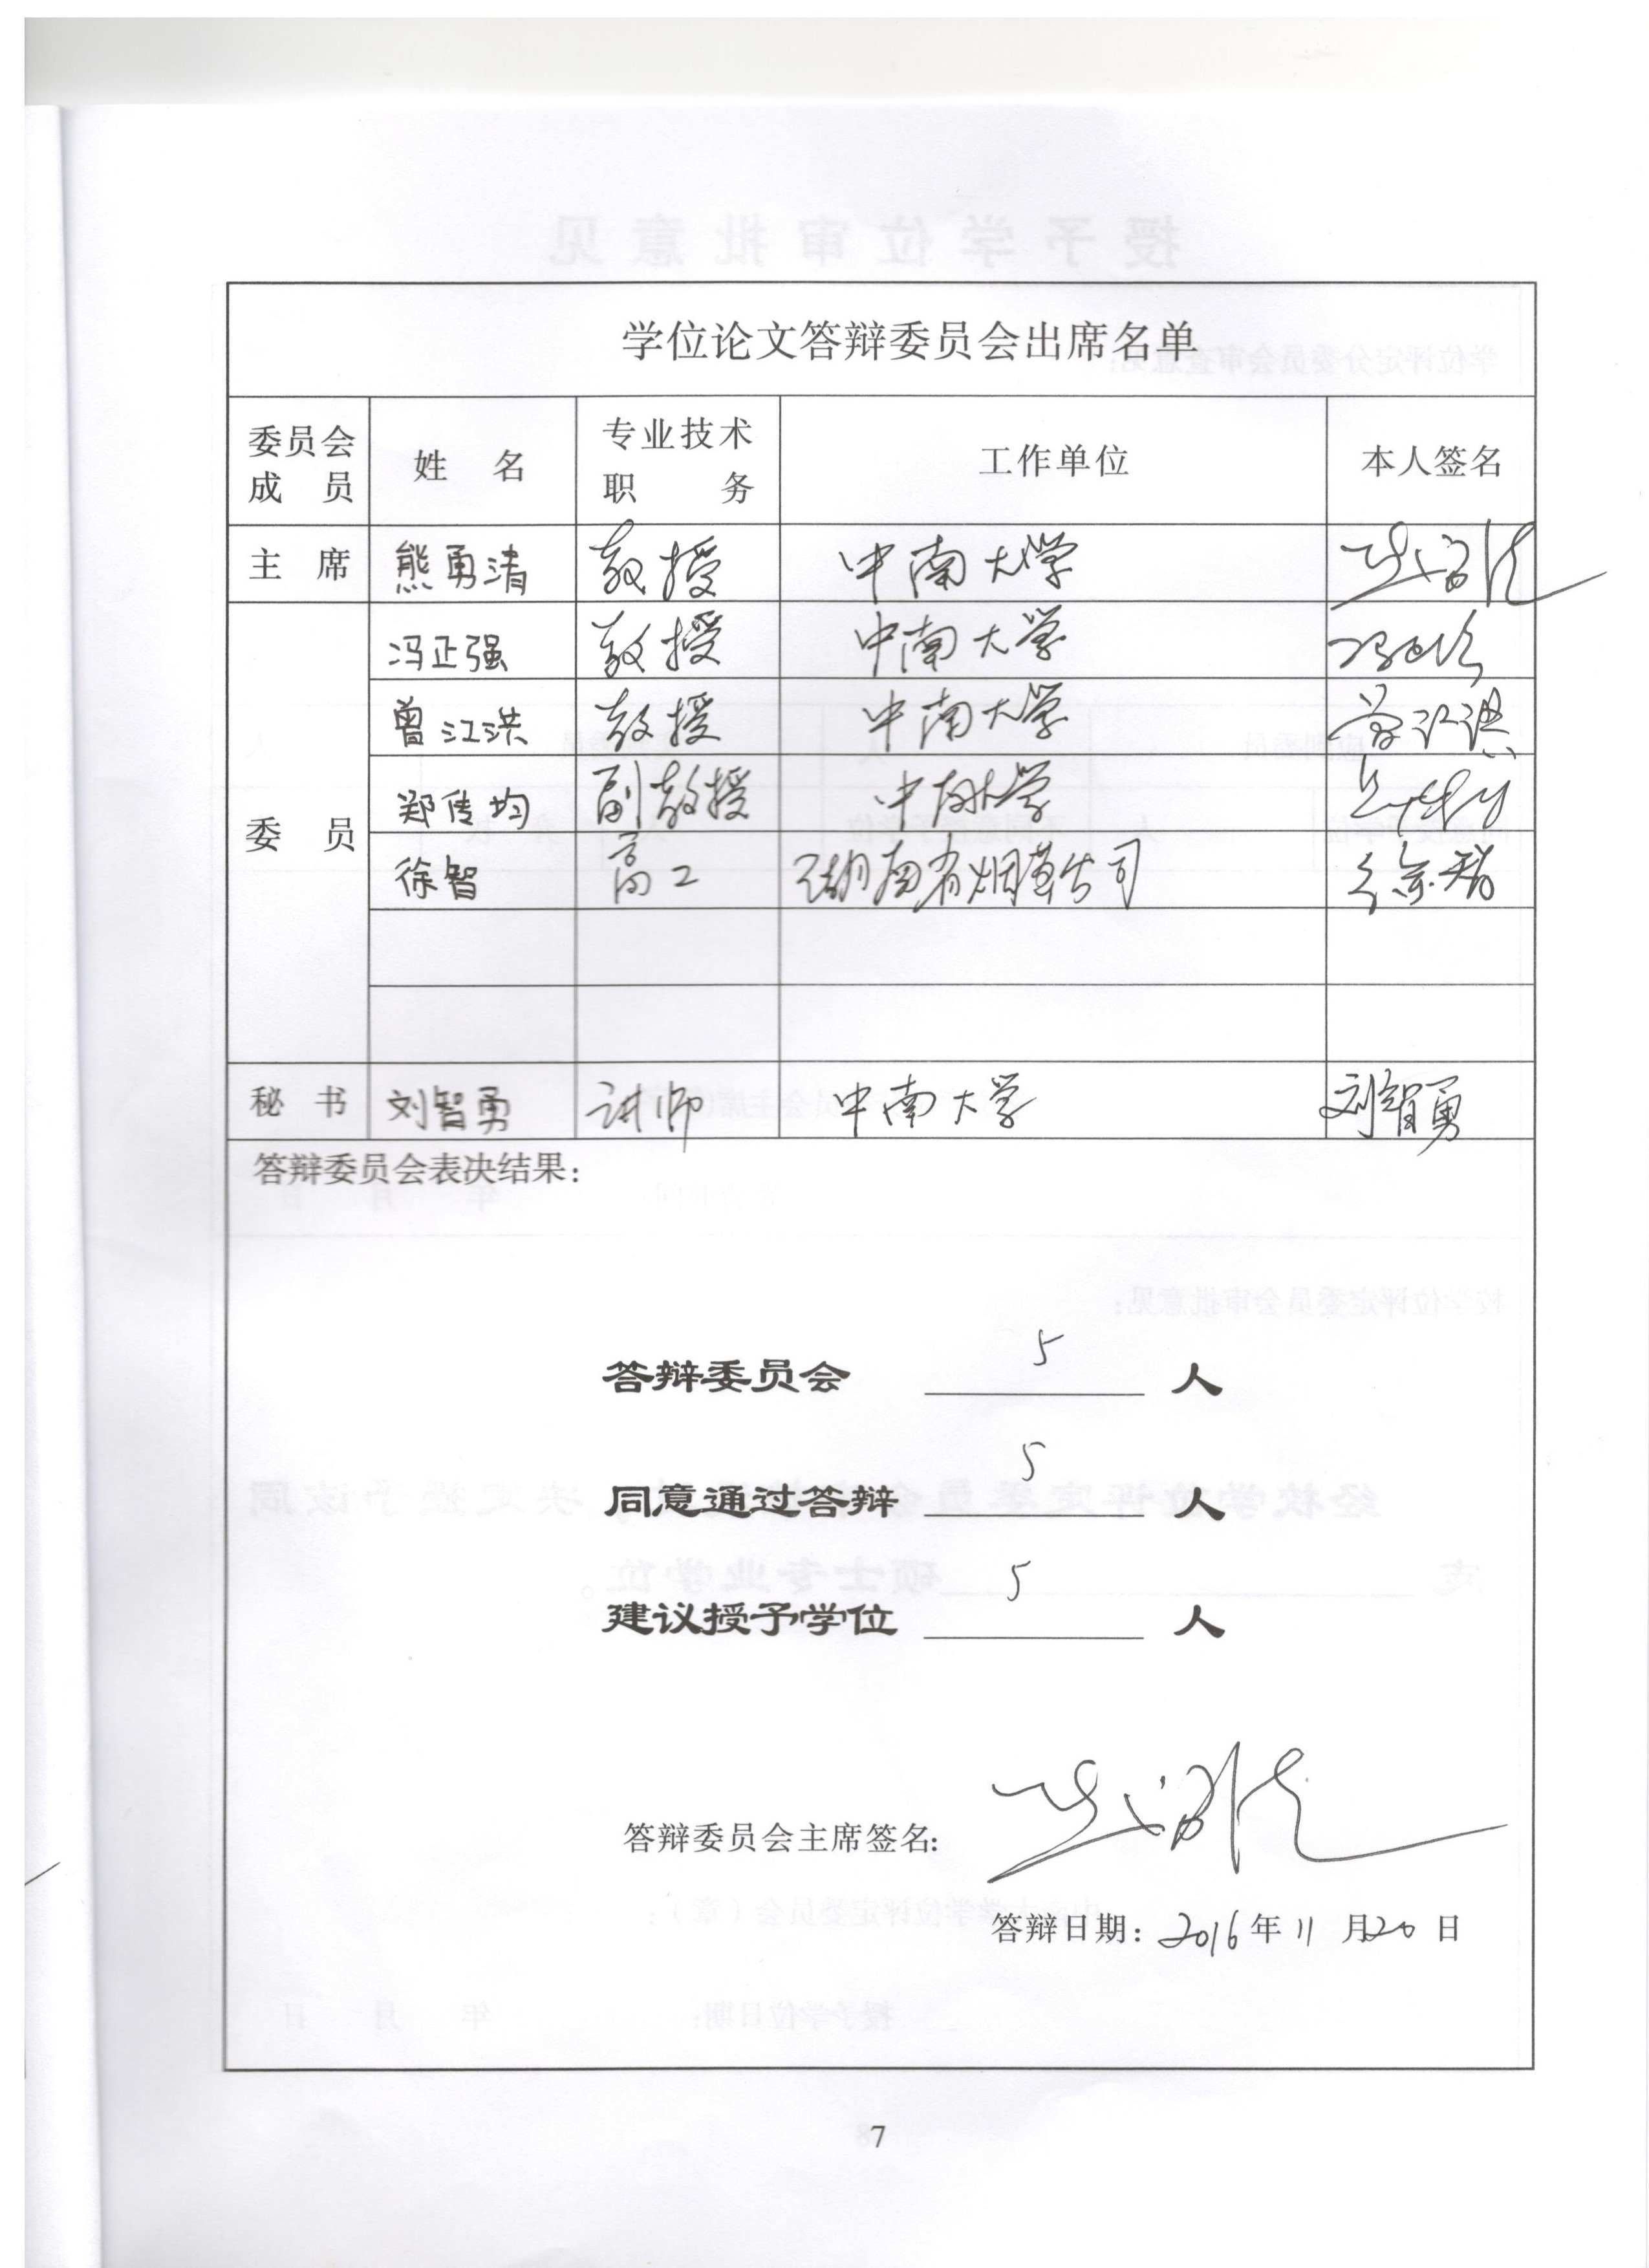 学位论文答辩委员会出席名单
委员会成员 姓名 专业技术职务 工作单位 本人签名
主席 熊勇清 教授 中南大学
冯正强 教授 中南大学
曾江洪 教授 中南大学 曾江洪
委员 郑传均 副教授 中南大学
徐智 高工 湖南省烟草公司 徐智
秘书 刘智勇 讲师 中南大学 刘智勇
答辩委员会表决结果：
答辩委员会 5 人
同意通过答辩 5 人
建议授予学位 5 人
答辩委员会主席签名：
答辩日期：2016年11月20日
7